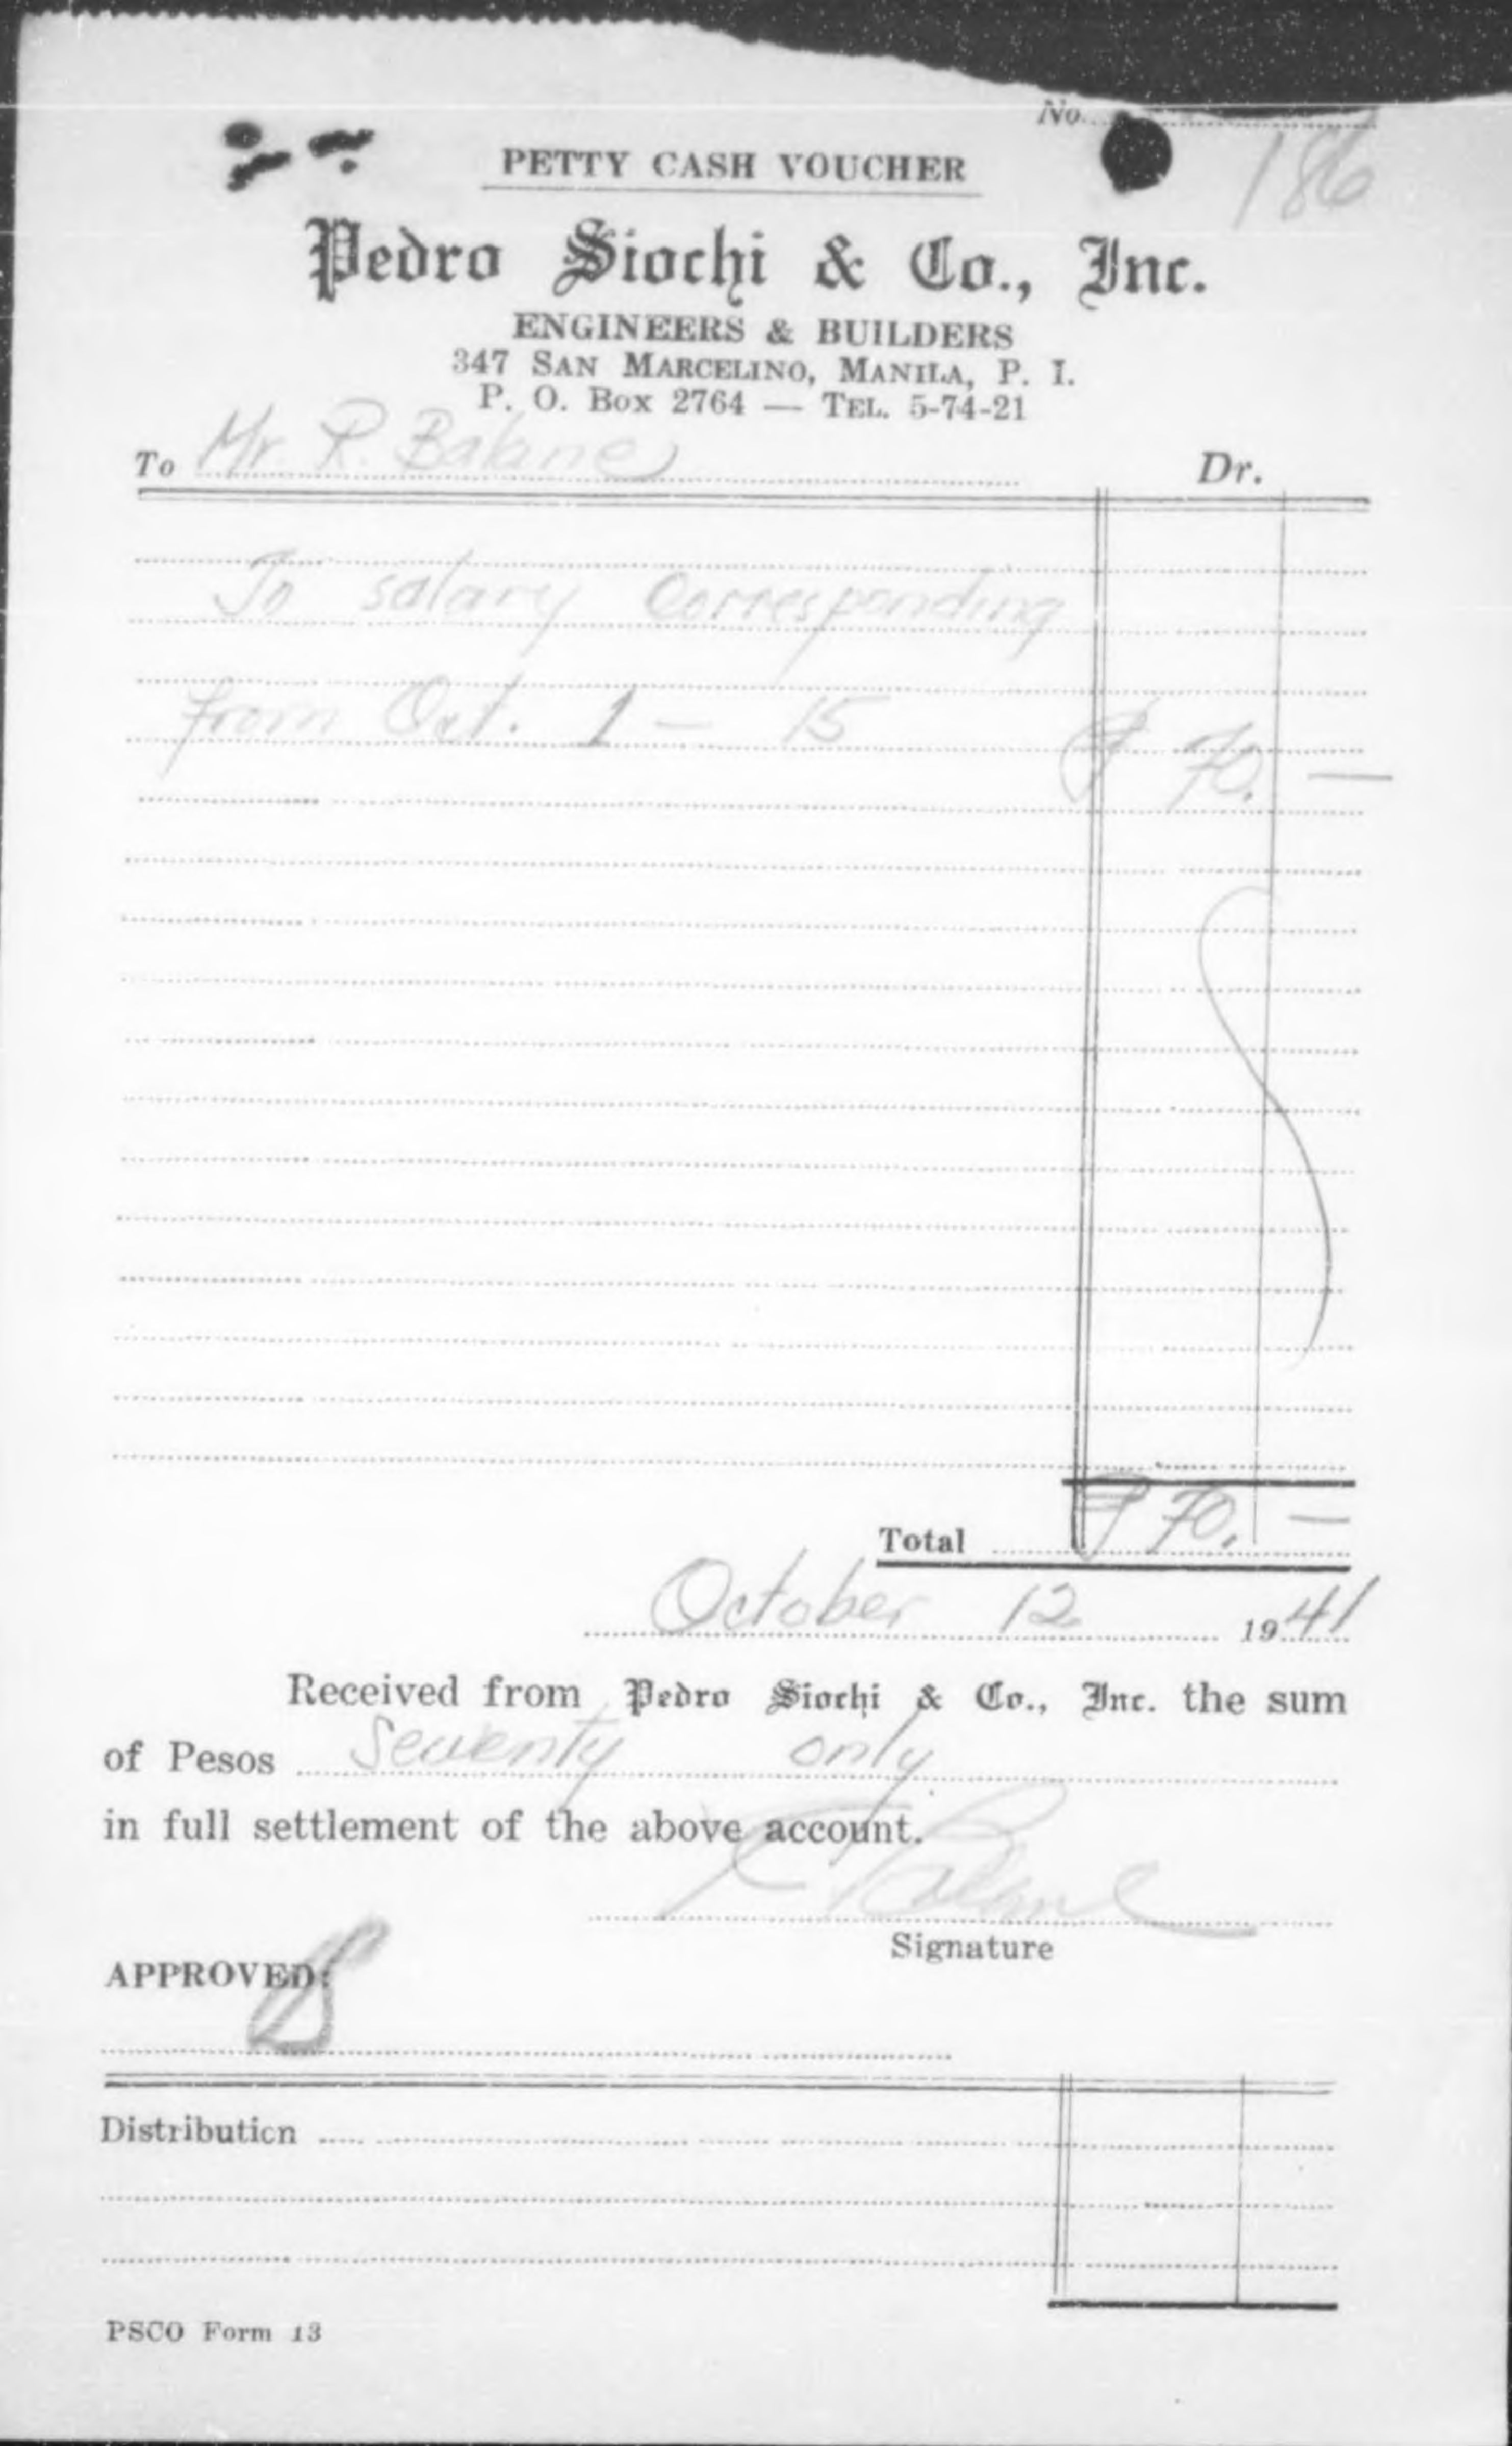 No.
186
PETTY CASH VOUCHER
Pedro Siochi & Co., Inc.
ENGINEERS & BUILDERS
347 SAN MARCELINO, MANILA, P. I.
P. O. Box 2764 — TEL. 5-74-21
To Mr. R. Balane Dr.
To salary corresponding
from Oct. 1 - 15 ₱ 70. —
Total ₱ 70. —
October 12 1941
Received from Pedro Siochi & Co., Inc. the sum
of Pesos Seventy only
in full settlement of the above account.
Balane
Signature
APPROVED:
Distribution
PSCO Form 13